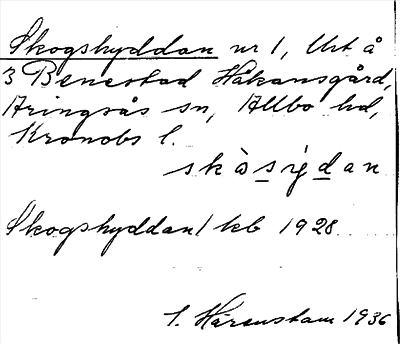 Skogshyddan nr 1, Urt å
3 Benestad Håkansgård,
Aringsås sn, Allbo hd,
Kronobs l.
skȯsi̯dan
Skogshyddan 1 kb 1928
1. Härenstam 1936